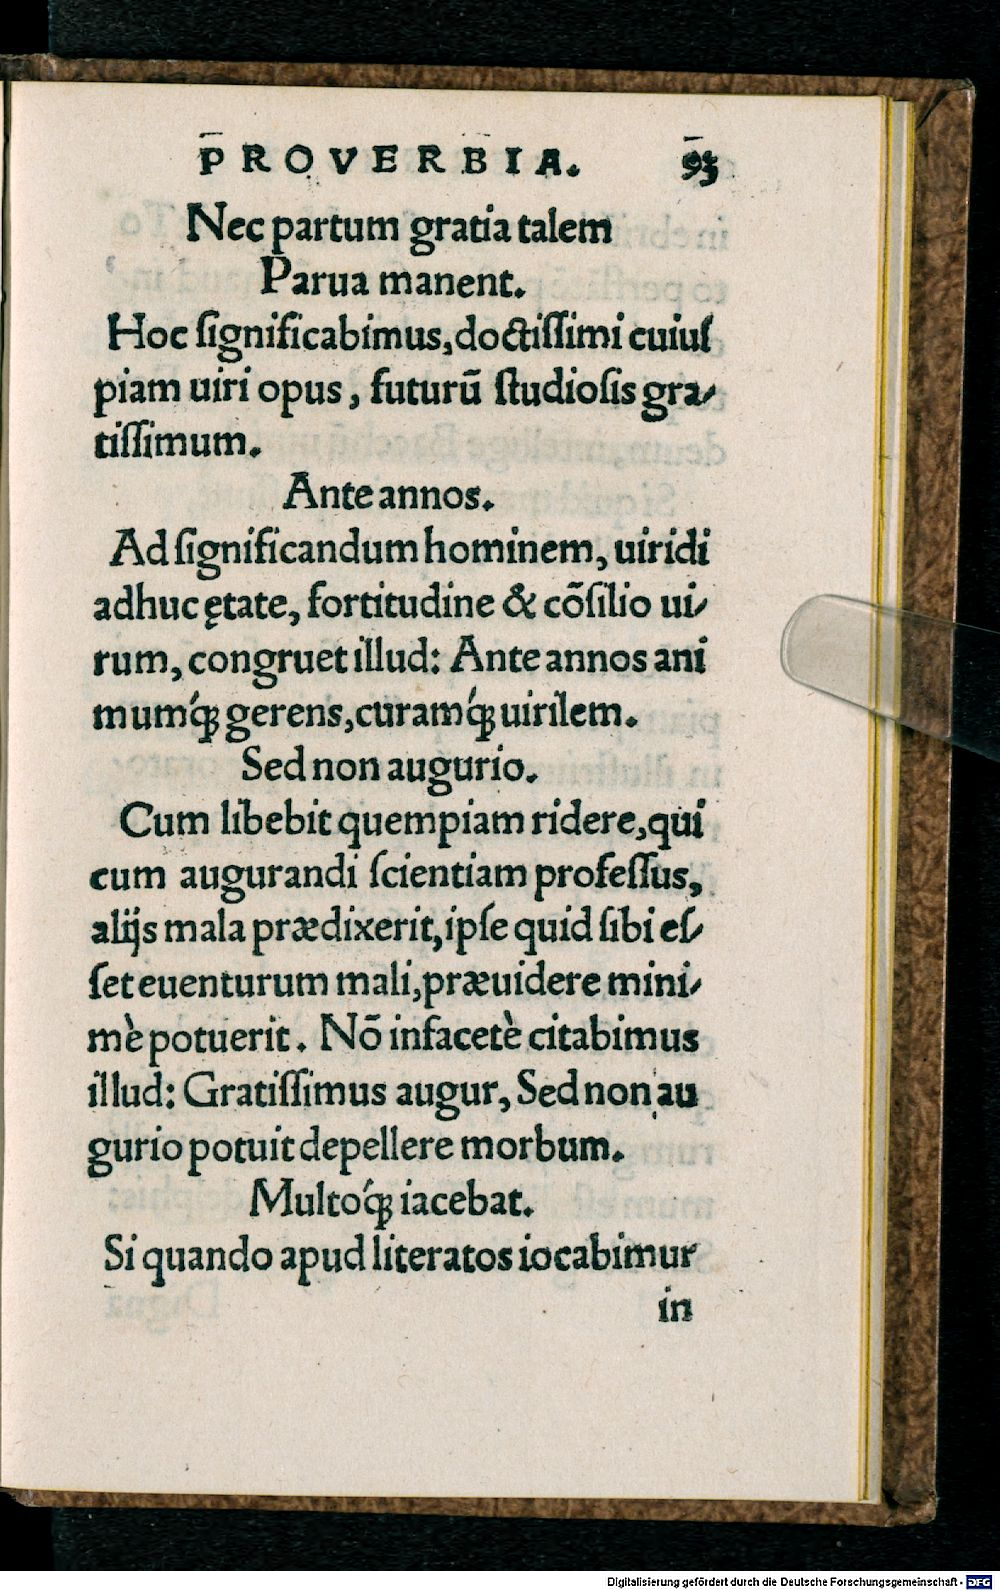 PROVERBIA. 93
Nec partum gratia talem
Parua manent.
Hoc ſignificabimus,doctiſſimi cuiuſ
piam uiri opus, futurū ſtudioſis gra⸗
tiſſimum.
Ante annos.
Ad ſignificandum hominem, uiridi
adhuc ętate, fortitudine & cōſilio ui⸗
rum, congruet illud: Ante annos ani
mumq́ꝫ gerens,curamq́ꝫ uirilem.
Sed non augurio.
Cum libebit quempiam ridere,qui
cum augurandi ſcientiam profeſſus,
alijs mala prædixerit,ipſe quid ſibi eſ⸗
ſet euenturum mali,præuidere mini⸗
mè potuerit. Nō infacetè citabimus
illud: Gratiſſimus augur, Sed non au
gurio potuit depellere morbum.
Multoq́ꝫ iacebat.
Si quando apud literatos iocabimur
in
Digitalisierung gefördert durch die Deutsche Forschungsgemeinschaft - DFG